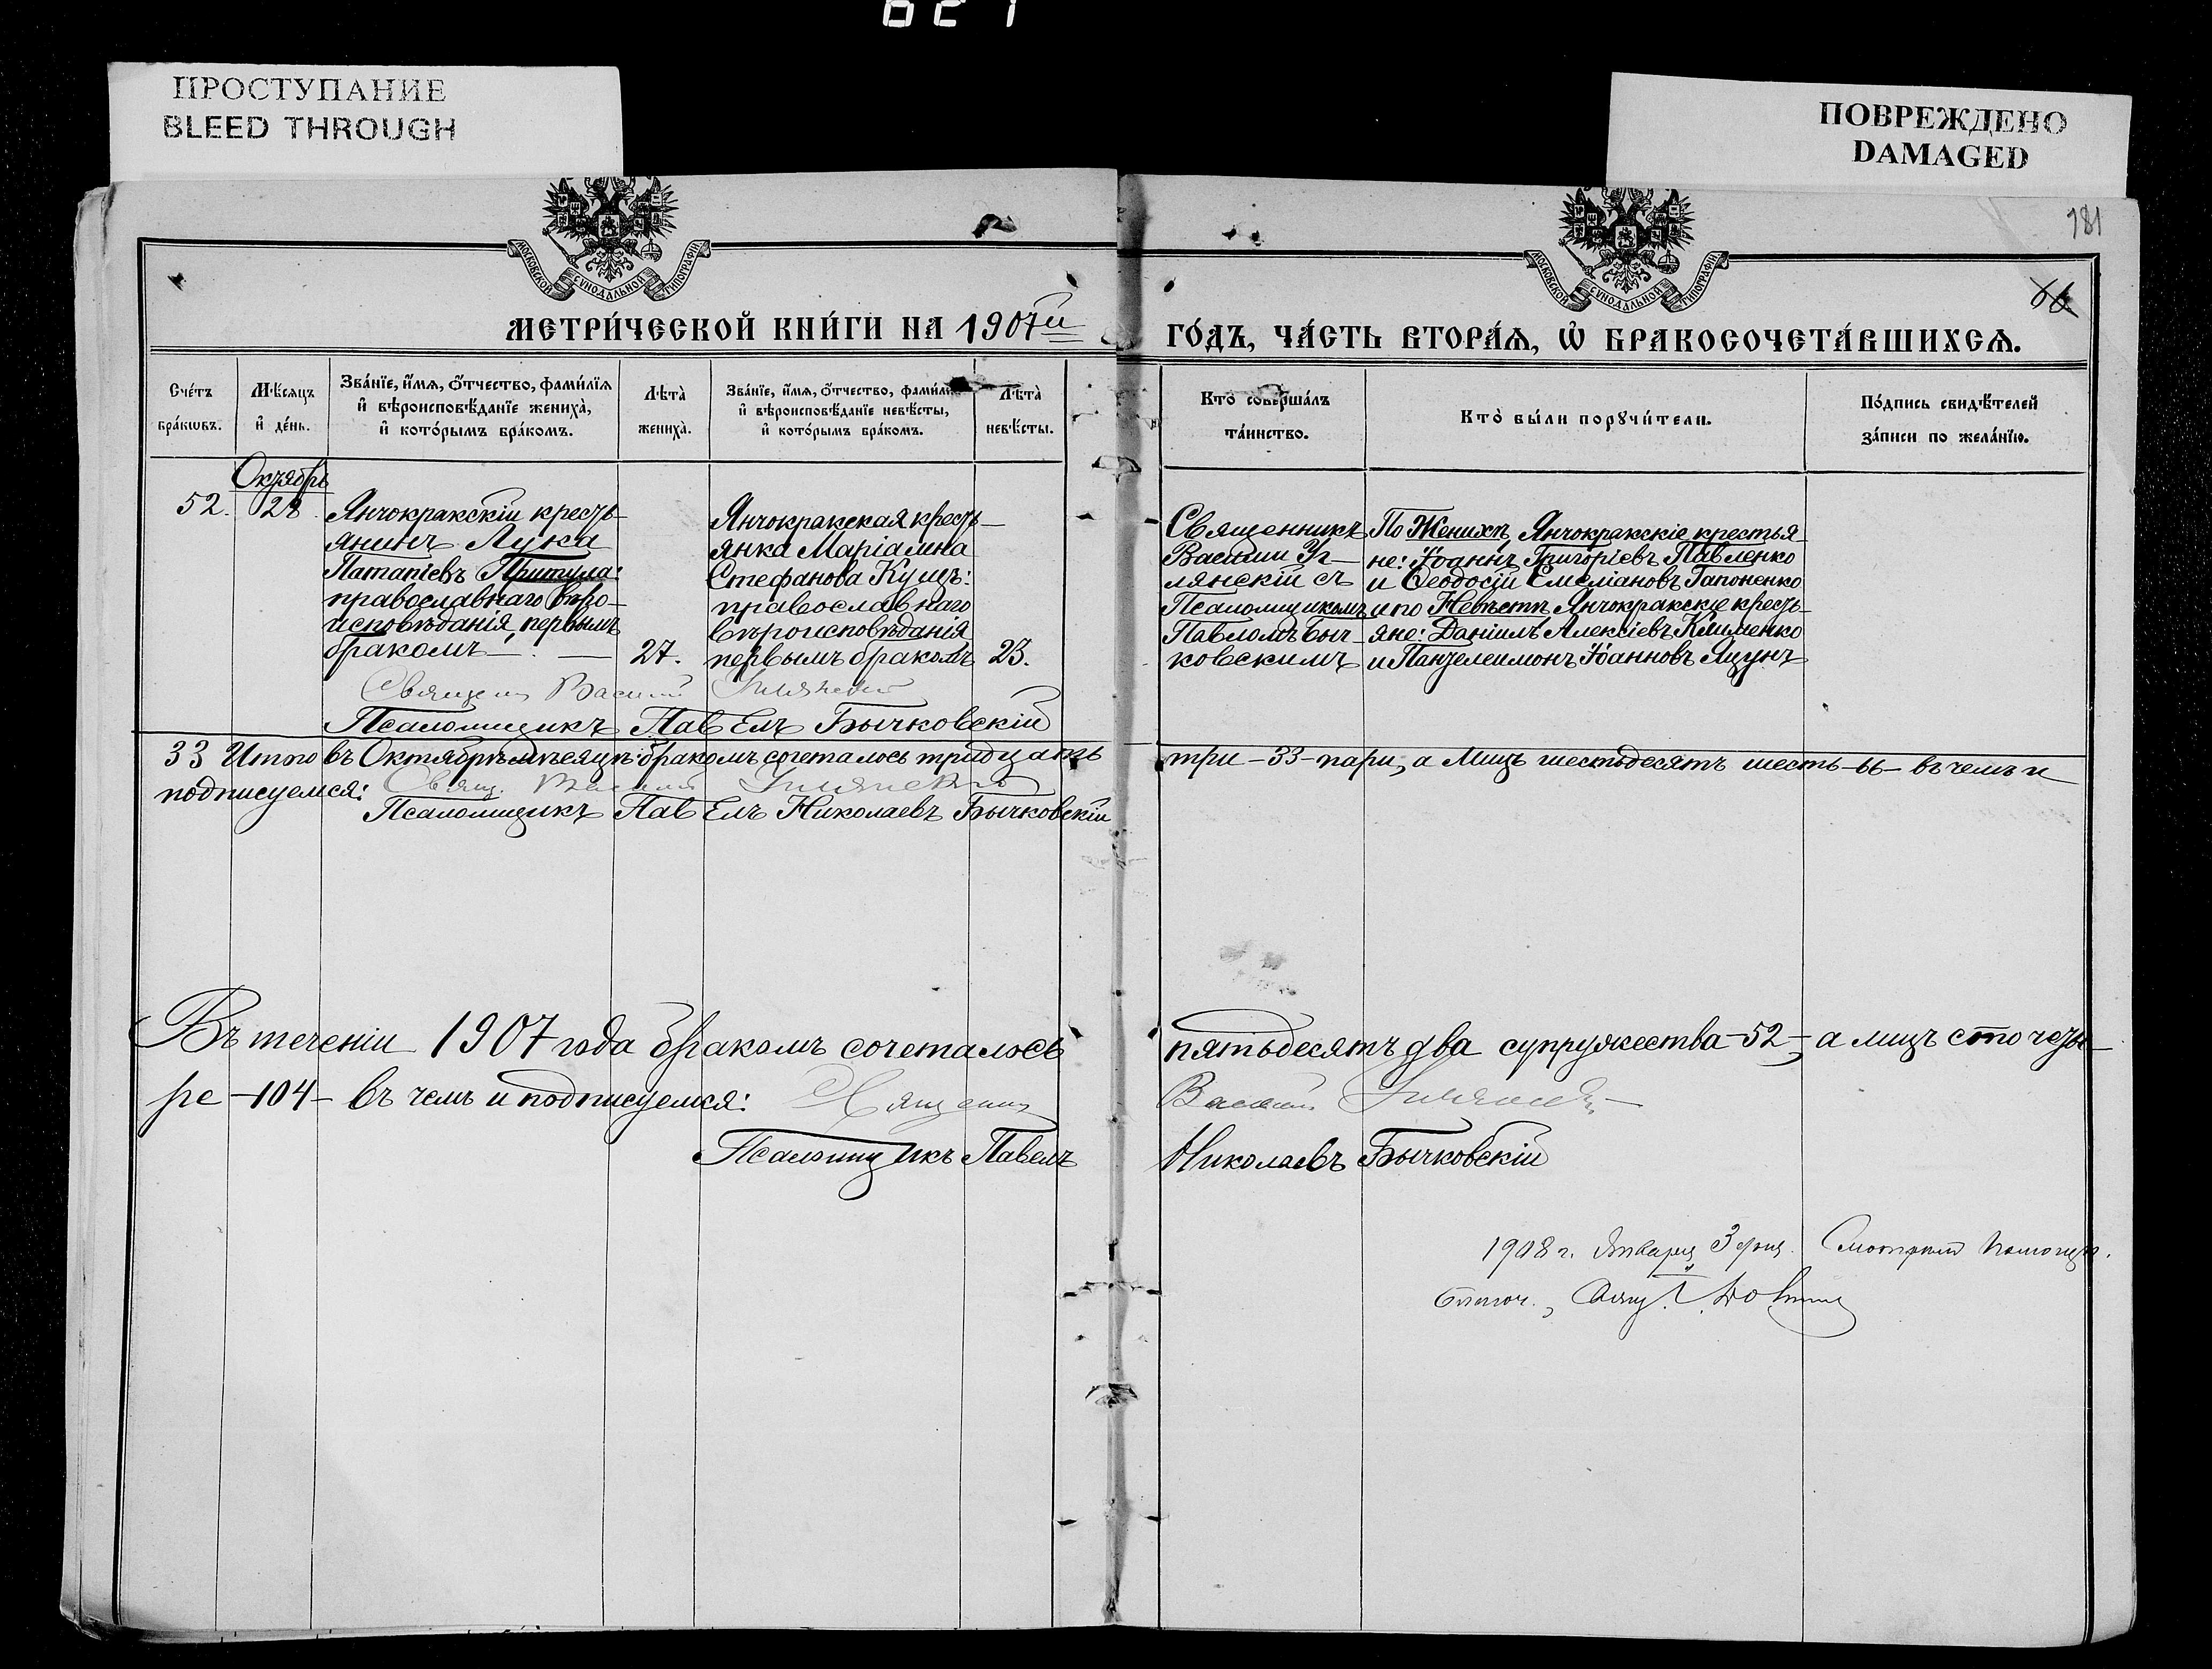 ПРОСТУПАНИЕ
BLEED THROUGH
ПОВРЕЖДЕНО
DAMAGED
181
66
МОСКОВСКОЙ СУНОДАЛЬНОЙ ТИПОГРАФІИ
МОСКОВСКОЙ СУНОДАЛЬНОЙ ТИПОГРАФІИ
МЕТРИ́ЧЕСКОЙ КНИ́ГИ НА 1907й
ГО́ДЪ, ЧА́СТЬ ВТОРА́Ѧ, Ѽ БРАКОСОЧЕТА́ВШИХСѦ.
Сче́тъ
бра́кѡвъ.
Мѣ́сѧцъ
и҆ де́нь.
Зва́нїе, и҆́мѧ, ѻ҆́тчество, фами́лїѧ
и҆ вѣроисповѣ́данїе жениха̀,
и҆ кото́рымъ бра́комъ.
Лѣта̀
жениха̀.
Зва́нїе, и҆́мѧ, ѻ҆́тчество, фами́лїѧ
и҆ вѣроисповѣ́данїе невѣ́сты,
и҆ кото́рымъ бра́комъ.
Лѣта̀
невѣ́сты.
Кто̀ соверша́лъ
та́инство.
Кто̀ бы́ли порꙋчи́тели.
По́дпись свидѣ́телей
за́писи по жела́нїю.
Октябрь
52.
28
Янчокракскій кресть-
янинъ Лука
Патапіевъ Притула:
православнаго вѣро-
исповѣданія, первымъ
бракомъ
27.
Янчокракская кресть-
янка Маріамна
Стефанова Куцъ:
православнаго
вѣроисповѣданія
первымъ бракомъ
23.
Священникъ
Василій
лянскій съ
Псаломщикомъ
Павломъ Быч-
ковскимъ
По Женихѣ, Янчокракскіе крестья-
не: Іоаннъ Григоріевъ Павленко
и Ѳеодосій Емеліановъ Гапоненко
и по Невѣстѣ Янчокракскіе кресть-
яне: Даніилъ Алексіевъ Клименко
и Пантелеимонъ Іоанновъ Яцунъ
Священ Василій
Псаломщикъ Павелъ Бычковскій
33 Итого въ Октябрѣ мѣсяцѣ бракомъ сочеталось тридцать
три -33- пари, а лицъ шестьдесятъ шесть -66- въ чемъ и
подписуемся: Свящ. Василій
Псаломщикъ Павелъ Николаевъ Бычковскій
Въ теченіи 1907 года бракомъ сочеталось
пятьдесятъ два супружества -52-, а лицъ сто четы-
ре -104- въ чемъ и подписуемся: Священ
Василій
Псаломщикъ Павелъ
Николаевъ Бычковскій
1908 г. Января 3 дня. Смотрѣлъ Помощн.
Благоч., Свящ.